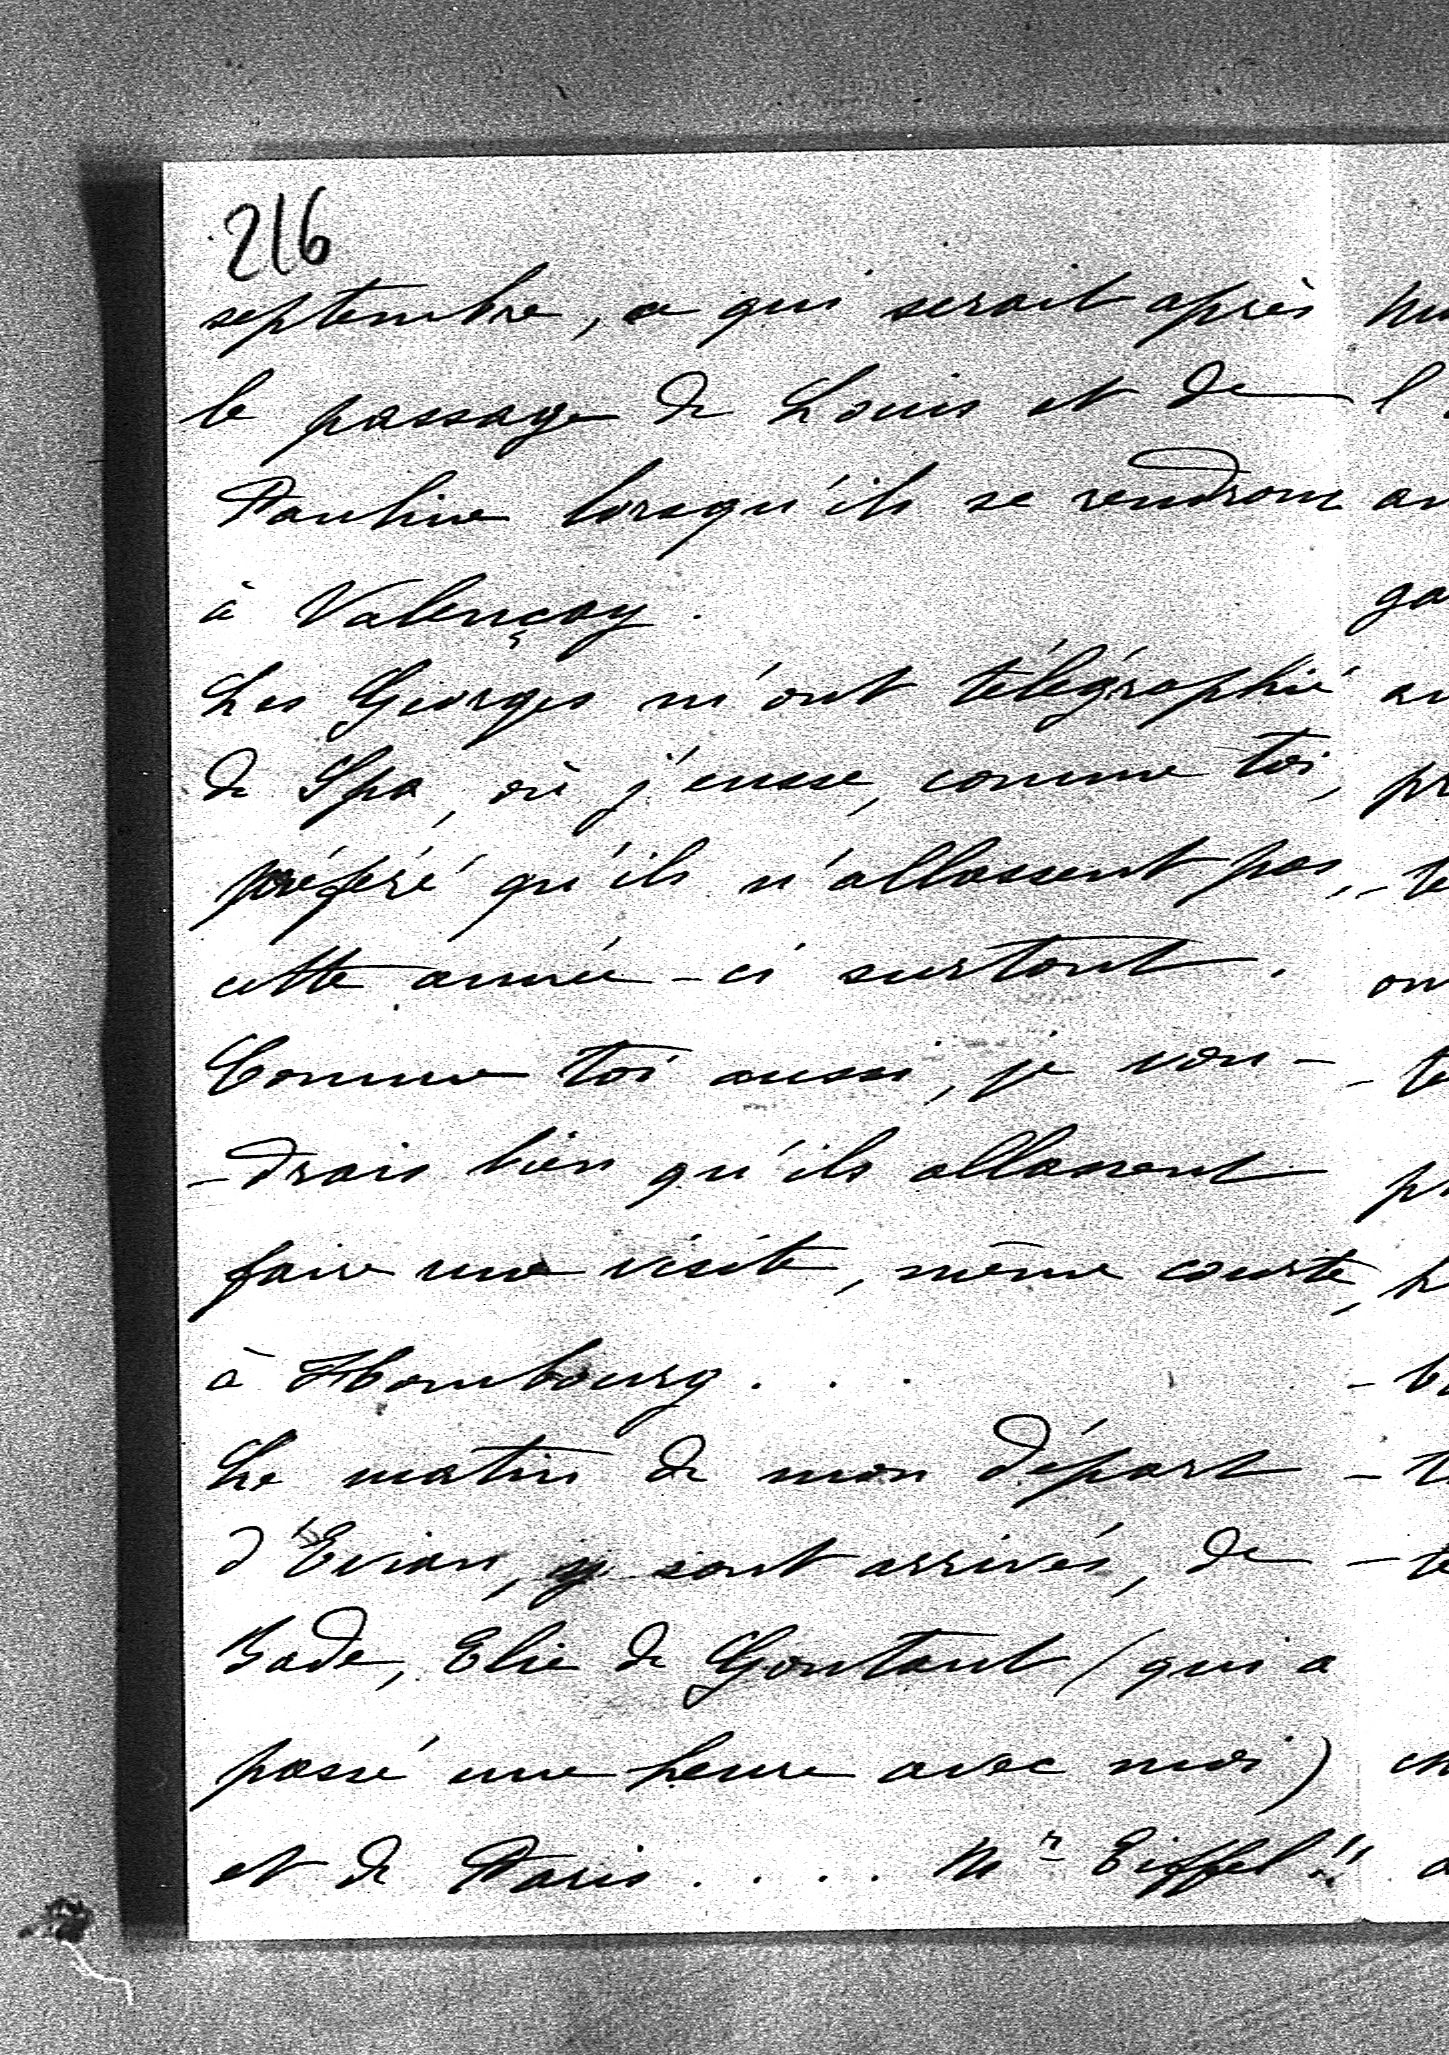 216
septembre, ce qui serait après
le passage de Louis et de
Pauline lorsqu'ils se rendront
à Valençay.
Les Georges m'ont télégraphié
de Spa, où j'eusse, comme toi,
préféré qu'ils n'allassent pas,
cette année-ci surtout.
Comme toi aussi, je vou-
-drais bien qu'ils allassent
faire une visite, même courte,
à Hombourg...
Le matin de mon départ
d'Evian, y sont arrivés, de
Bade, Elie de Gontaut (qui a
passé une heure avec moi)
et de Paris.... Mr Eiffel!!